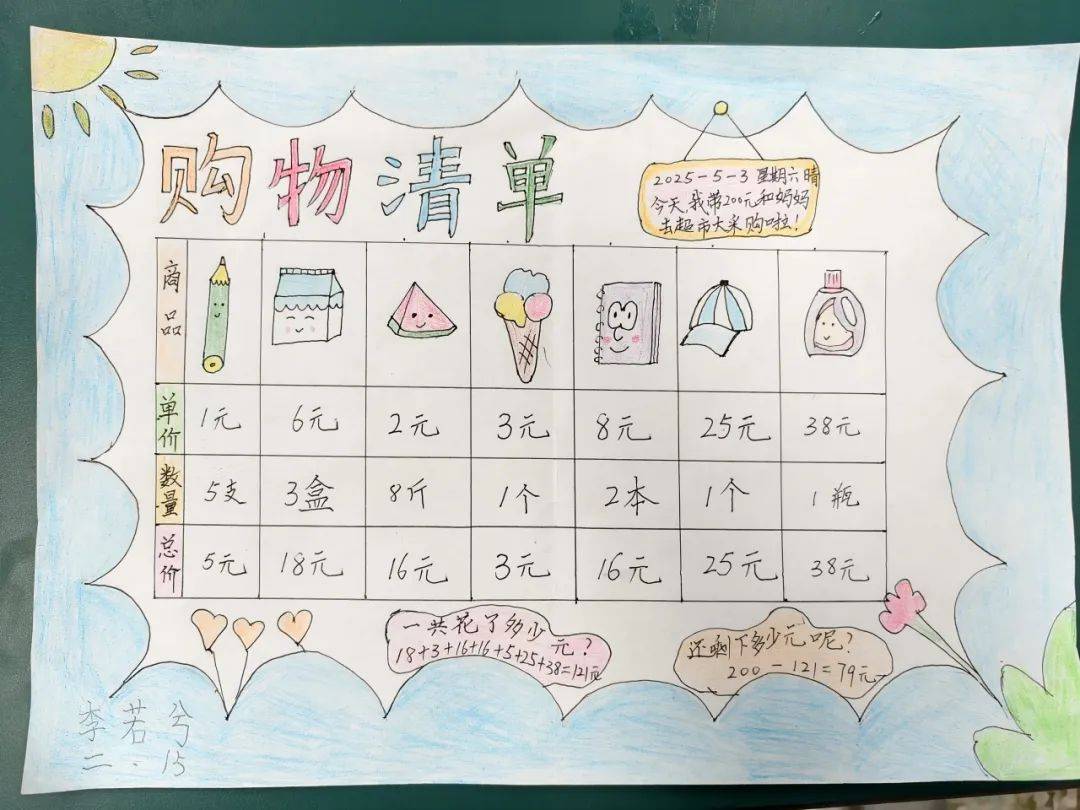 购物清单
2025-5-3 星期六晴
今天,我带200元和妈妈
去超市大采购啦!
商品
单价 1元 6元 2元 3元 8元 25元 38元
数量 5支 3盒 8斤 1个 2本 1个 1瓶
总价 5元 18元 16元 3元 16元 25元 38元
一共花了多少元?
18+3+16+16+5+25+38=121元
还剩下多少元呢?
200-121=79元
李若兮
二.15